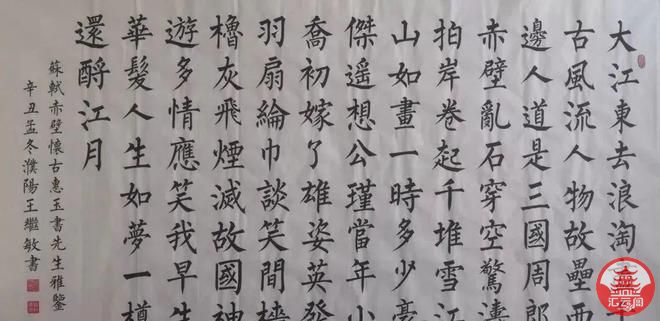 大江東去浪淘
古風流人物故壘西
邊人道是三國周郎
赤壁亂石穿空驚濤
拍岸卷起千堆雪江
山如畫一時多少豪
傑遥想公瑾當年小
喬初嫁了雄姿英發
羽扇綸巾談笑間檣
櫓灰飛煙滅故國神
遊多情應笑我早生
華髮人生如夢一樽
還酹江月
蘇軾赤壁懷古惠玉書先生雅鑒
辛丑孟冬濮陽王繼敏書
汇云阁